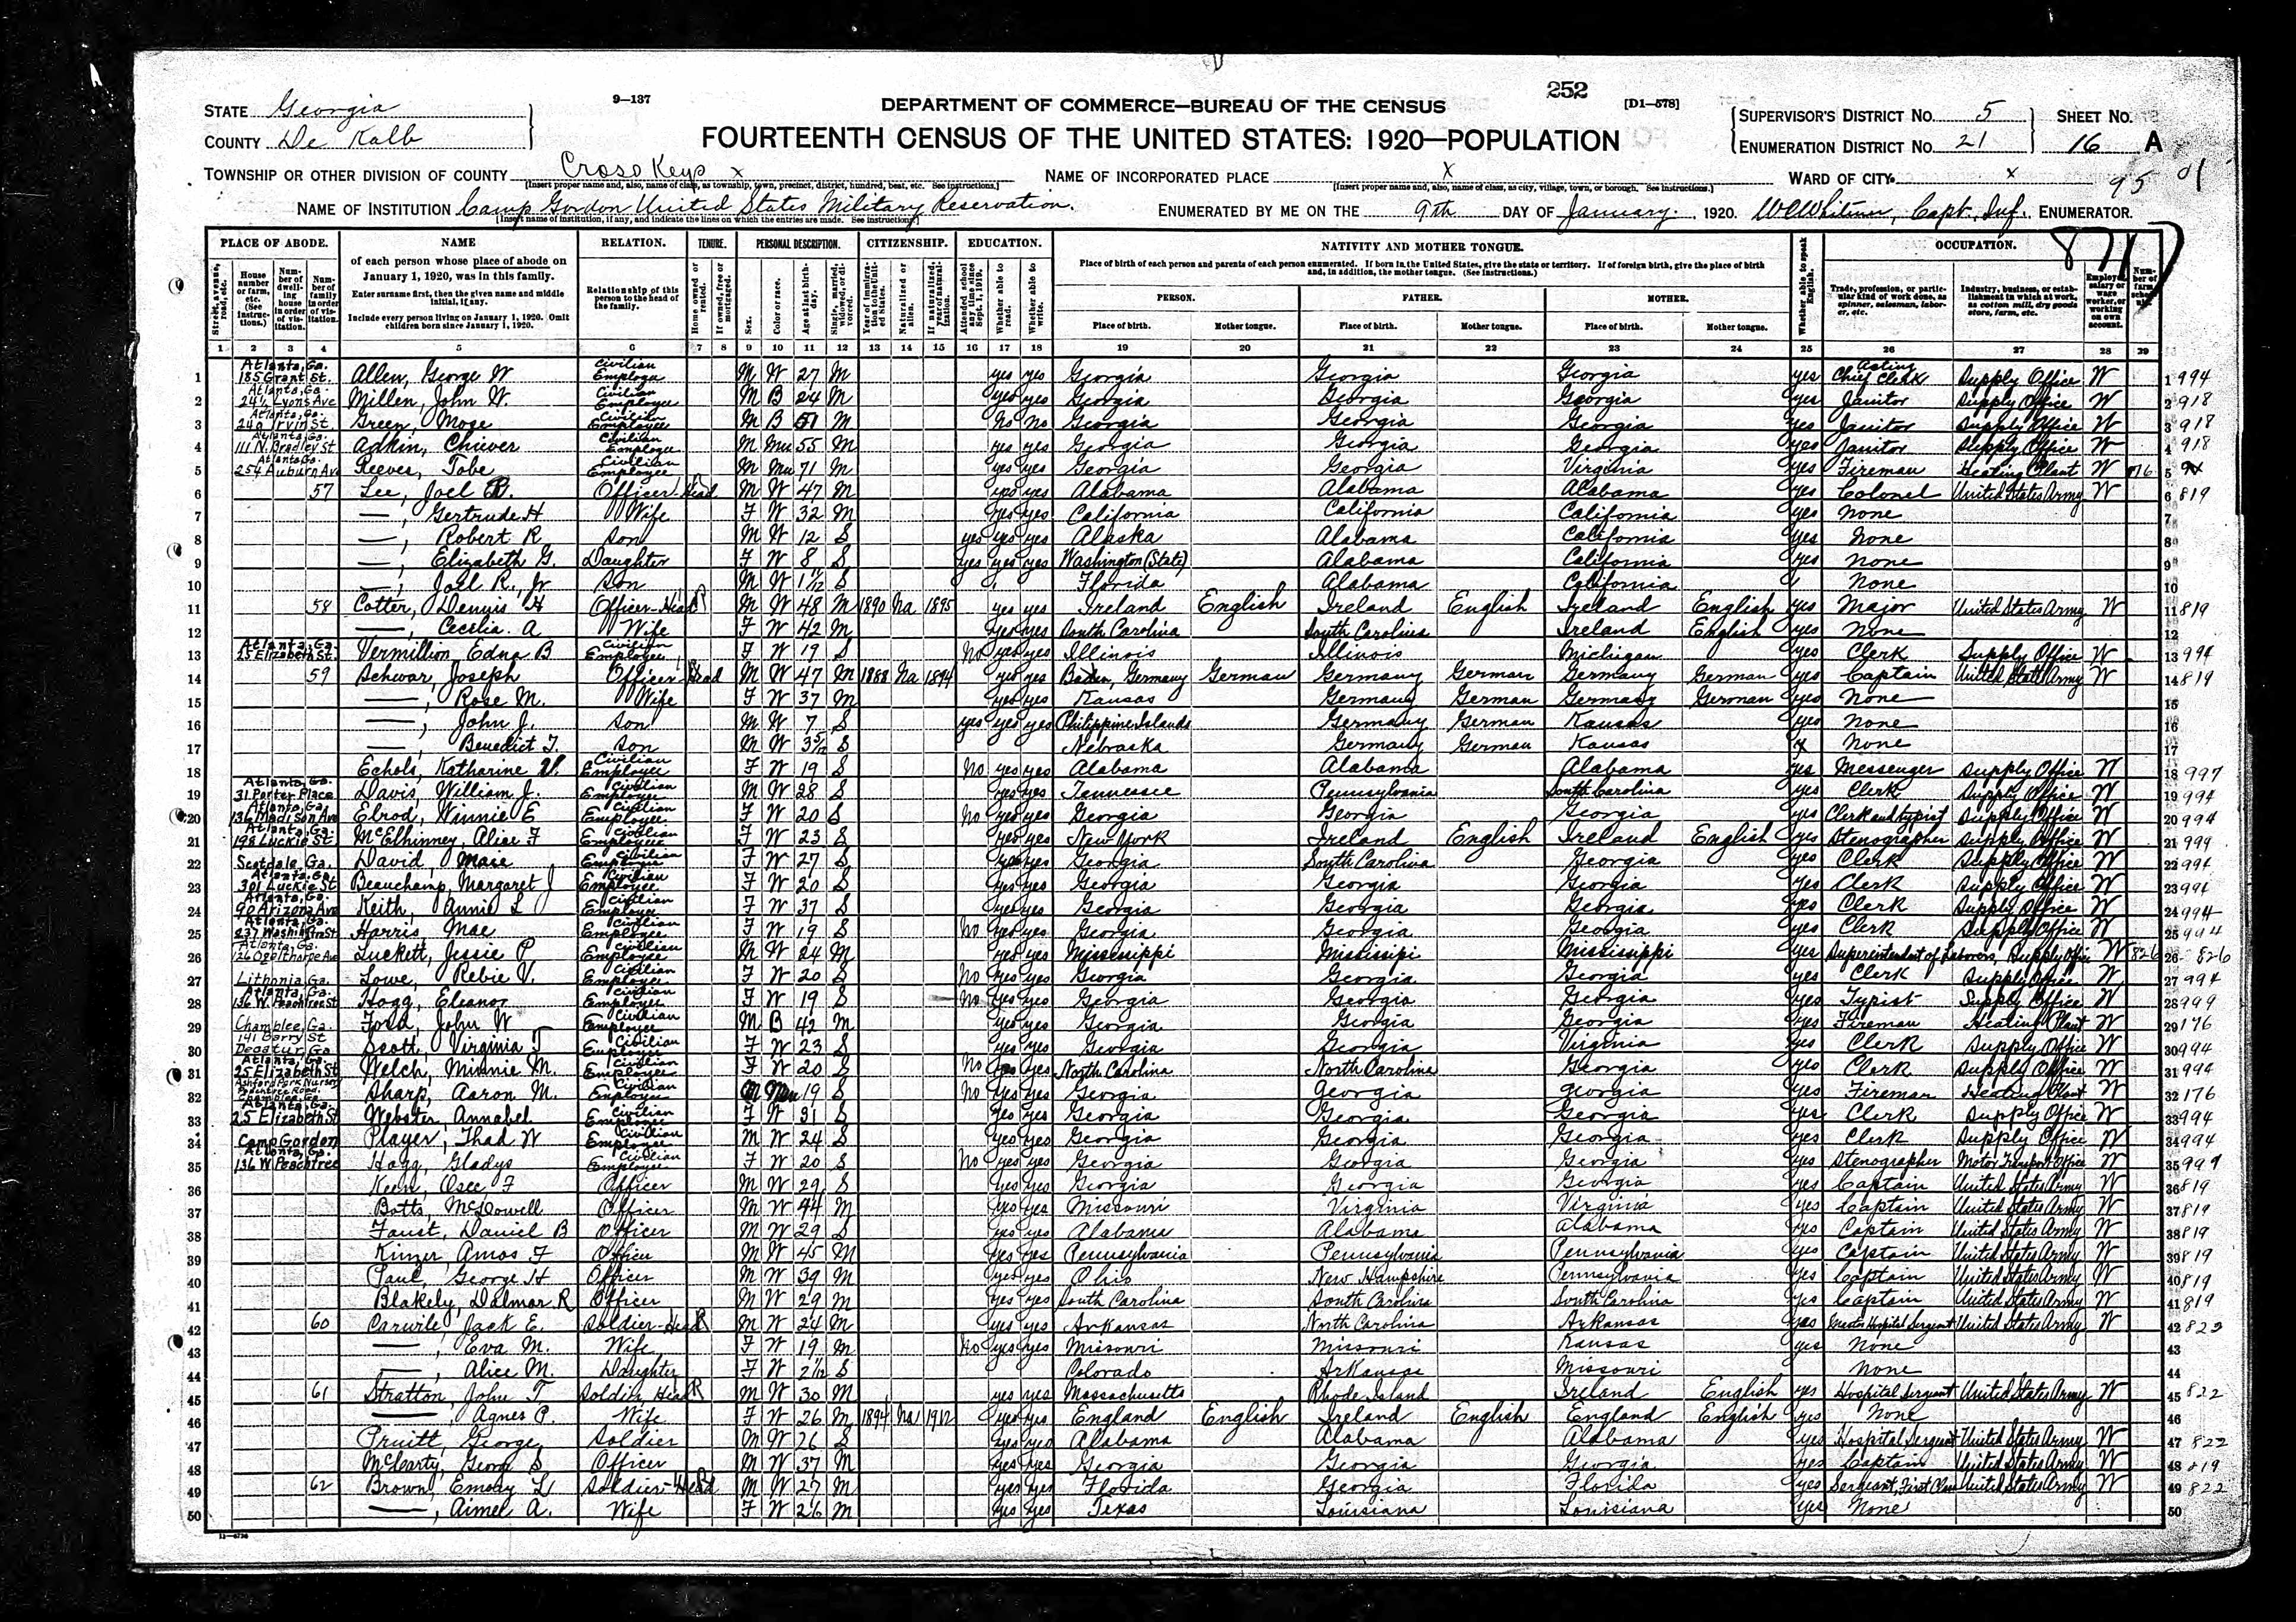 252
9—137
DEPARTMENT OF COMMERCE—BUREAU OF THE CENSUS
[D1—578]
FOURTEENTH CENSUS OF THE UNITED STATES: 1920—POPULATION
STATE Georgia
COUNTY De Kalb
SUPERVISOR'S DISTRICT No. 5
ENUMERATION DISTRICT No. 21
SHEET No. 16 A
95 01
TOWNSHIP OR OTHER DIVISION OF COUNTY Cross Keys x
[Insert proper name and, also, name of class, as township, town, precinct, district, hundred, beat, etc. See instructions.]
NAME OF INCORPORATED PLACE x
[Insert proper name and, also, name of class, as city, village, town, or borough. See instructions.]
WARD OF CITY x
NAME OF INSTITUTION Camp Gordon United States Military Reservation.
[Insert name of institution, if any, and indicate the lines on which the entries are made. See instructions.]
ENUMERATED BY ME ON THE 9th DAY OF January, 1920. WCWhitener, Capt., Inf., ENUMERATOR.
PLACE OF ABODE. NAME RELATION. TENURE. PERSONAL DESCRIPTION. CITIZENSHIP. EDUCATION. NATIVITY AND MOTHER TONGUE. OCCUPATION.
of each person whose place of abode on January 1, 1920, was in this family.
Enter surname first, then the given name and middle initial, if any.
Include every person living on January 1, 1920. Omit children born since January 1, 1920.
Relationship of this person to the head of the family.
Place of birth of each person and parents of each person enumerated. If born in the United States, give the state or territory. If of foreign birth, give the place of birth and, in addition, the mother tongue. (See instructions.)
PERSON. FATHER. MOTHER.
Place of birth. Mother tongue. Place of birth. Mother tongue. Place of birth. Mother tongue.
1 2 3 4 5 6 7 8 9 10 11 12 13 14 15 16 17 18 19 20 21 22 23 24 25 26 27 28 29
1 Atlanta, Ga. 185 Grant St. Allen, George W Civilian Employe M W 27 M yes yes Georgia Georgia Georgia yes Acting Chief Clerk Supply Office W 1 994
2 Atlanta, Ga. 24½ Lyons Ave Millen, John W. Civilian Employee M B 24 M yes yes Georgia Georgia Georgia yes Janitor Supply Office W 2 918
3 Atlanta, Ga. 240 Irvin St. Green, Mose Civilian Employee M B 51 M No No Georgia Georgia Georgia yes Janitor Supply Office W 3 918
4 Atlanta, Ga. 111 N. Bradley St Adkin, Chiever Civilian Employee M Mu 55 M yes yes Georgia Georgia Georgia yes Janitor Supply Office W 4 918
5 Atlanta, Ga. 254 Auburn Ave Reeves, Tobe Civilian Employee M Mu 71 M yes yes Georgia Georgia Virginia yes Fireman Heating Plant W 5
6 57 Lee, Joel R. Officer-Head M W 47 M yes yes Alabama Alabama Alabama yes Colonel United States Army W 6 819
7 —, Gertrude H Wife F W 32 M yes yes California California California yes None 7
8 —, Robert R Son M W 12 S yes yes yes Alaska Alabama California yes None 8
9 —, Elizabeth G. Daughter F W 8 S yes yes yes Washington (State) Alabama California yes None 9
10 —, Joel R., Jr Son M W 1 11/12 S Florida Alabama California None 10
11 58 Cotter, Dennis H Officer-Head R M W 48 M 1890 Na 1895 yes yes Ireland English Ireland English Ireland English yes Major United States Army W 11 819
12 —, Cecelia. A Wife F W 42 M yes yes South Carolina South Carolina Ireland English yes None 12
13 Atlanta, Ga. 25 Elizabeth St. Vermillion, Edna B Civilian Employee F W 19 S No yes yes Illinois Illinois Michigan yes Clerk Supply Office W 13 994
14 59 Schwar, Joseph Officer-Head M W 47 M 1888 Na 1894 yes yes Baden, Germany German Germany German Germany German yes Captain United States Army W 14 819
15 —, Rose M. Wife F W 37 M yes yes Kansas Germany German Germany German yes None 15
16 —, John J. Son M W 7 S yes yes yes Philippine Islands Germany German Kansas yes None 16
17 —, Benedict T. Son M W 3 5/12 S Nebraska Germany German Kansas x None 17
18 Echols, Katharine V. Civilian Employee F W 19 S No yes yes Alabama Alabama Alabama yes Messenger Supply Office W 18 997
19 Atlanta, Ga. 31 Porter Place Davis, William J. Civilian Employee M W 28 S yes yes Tennessee Pennsylvania South Carolina yes Clerk Supply Office W 19 994
20 Atlanta, Ga. 136 Madison Ave Elrod, Winnie E Civilian Employee F W 20 S No yes yes Georgia Georgia Georgia yes Clerk and typist Supply Office W 20 994
21 Atlanta, Ga. 198 Luckie St. McElhinney, Alice F Civilian Employee F W 23 S yes yes New York Ireland English Ireland English yes Stenographer Supply Office W 21 999
22 Scotdale, Ga. David, Maie Civilian Employee F W 27 S yes yes Georgia South Carolina Georgia yes Clerk Supply Office W 22 994
23 Atlanta, Ga. 301 Luckie St Beauchamp, Margaret J Civilian Employee F W 20 S yes yes Georgia Georgia Georgia yes Clerk Supply Office W 23 994
24 Atlanta, Ga. 90 Arizona Ave Keith, Annie L Civilian Employee F W 37 S yes yes Georgia Georgia Georgia yes Clerk Supply Office W 24 994
25 Atlanta, Ga. 237 Washington St Harris, Mae Civilian Employee F W 19 S No yes yes Georgia Georgia Georgia yes Clerk Supply Office W 25 994
26 Atlanta, Ga. 126 Oglethorpe Ave Luckett, Jessie P Civilian Employee M W 24 M yes yes Mississippi Mississippi Mississippi yes Superintendent of Laborers, Supply Office W 826 26 826
27 Lithonia, Ga. Lowe, Rebie V. Civilian Employee F W 20 S No yes yes Georgia Georgia Georgia yes Clerk Supply Office W 27 994
28 Atlanta, Ga. 136 W. Peachtree St Hogg, Eleanor Civilian Employee F W 19 S No yes yes Georgia Georgia Georgia yes Typist Supply Office W 28 999
29 Chamblee, Ga. Ford, John W Civilian Employee M B 42 M yes yes Georgia Georgia Georgia yes Fireman Heating Plant W 29 176
30 141 Barry St Decatur, Ga Scott, Virginia T Civilian Employee F W 23 S yes yes Georgia Georgia Virginia yes Clerk Supply Office W 30 994
31 Atlanta, Ga. 25 Elizabeth St Welch, Minnie M. Civilian Employee F W 20 S No yes yes North Carolina North Carolina Georgia yes Clerk Supply Office W 31 994
32 Ashford Park Nursery Peachtree Road. Chamblee, Ga. Sharp, Aaron M. Civilian Employee M 19 S No yes yes Georgia Georgia Georgia yes Fireman Heating Plant W 32 176
33 Atlanta, Ga. 25 Elizabeth St Webster, Annabel Civilian Employee F W 31 S yes yes Georgia Georgia Georgia yes Clerk Supply Office W 33 994
34 Camp Gordon Player, Thad W Civilian Employee M W 24 S yes yes Georgia Georgia Georgia yes Clerk Supply Office W 34 994
35 Atlanta, Ga. 136 W Peachtree Hogg, Gladys Civilian Employee F W 20 S No yes yes Georgia Georgia Georgia yes Stenographer Motor Transport Office W 35 999
36 Keen, Osee, F Officer M W 29 S yes yes Georgia Georgia Georgia yes Captain United States Army W 36 819
37 Botts, McDowell Officer M W 44 M yes yes Missouri Virginia Virginia yes Captain United States Army W 37 819
38 Faust, Daniel B Officer M W 29 S yes yes Alabama Alabama Alabama yes Captain United States Army W 38 819
39 Kinzer, Amos F Officer M W 45 M yes yes Pennsylvania Pennsylvania Pennsylvania yes Captain United States Army W 39 819
40 Paul, George H Officer M W 39 M yes yes Ohio New Hampshire Pennsylvania yes Captain United States Army W 40 819
41 Blakely, Dalmar R Officer M W 29 M yes yes South Carolina South Carolina South Carolina yes Captain United States Army W 41 819
42 60 Carwile, Jack E. Soldier-Head R M W 24 M yes yes Arkansas North Carolina Arkansas yes Master Hospital Sergeant United States Army W 42 823
43 —, Eva M. Wife F W 19 M No yes yes Missouri Missouri Kansas yes None 43
44 —, Alice M. Daughter F W 2 1/12 S Colorado Arkansas Missouri None 44
45 61 Stratton, John T Soldier Head R M W 30 M yes yes Massachusetts Rhode Island Ireland English yes Hospital Sergeant United States Army W 45 822
46 —, Agnes P. Wife F W 26 M 1894 Na 1912 yes yes England English Ireland English England English yes None 46
47 Pruitt, George Soldier M W 26 S yes yes Alabama Alabama Alabama yes Hospital Sergeant United States Army W 47 822
48 McCarty, George S Officer M W 37 M yes yes Georgia Georgia Georgia yes Captain United States Army W 48 819
49 62 Brown, Emory L Soldier-Head M W 27 M yes yes Florida Georgia Florida yes Sergeant, First Class United States Army W 49 822
50 —, Aimel A. Wife F W 26 M yes yes Texas Louisiana Louisiana yes None 50